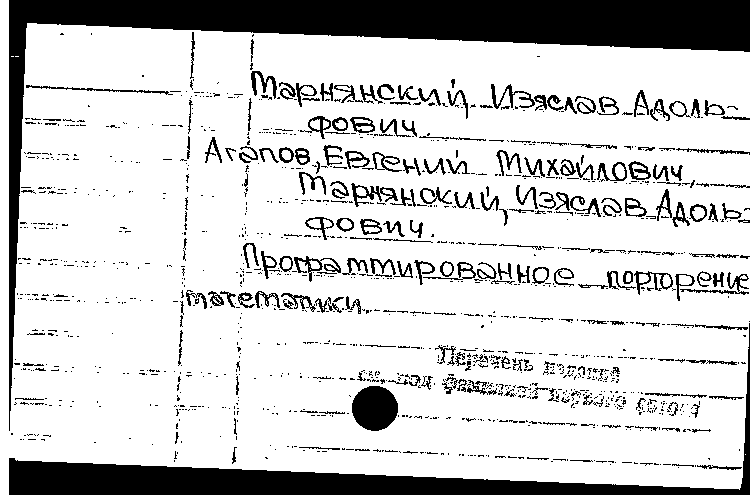 Марнянский, Изяслав Адоль-
фович.
Агапов, Евгений Михайлович,
Марнянский, Изяслав Адоль-
фович.
Программированное повторение
математики.
Перечень изданий
см. под фамилией первого автора